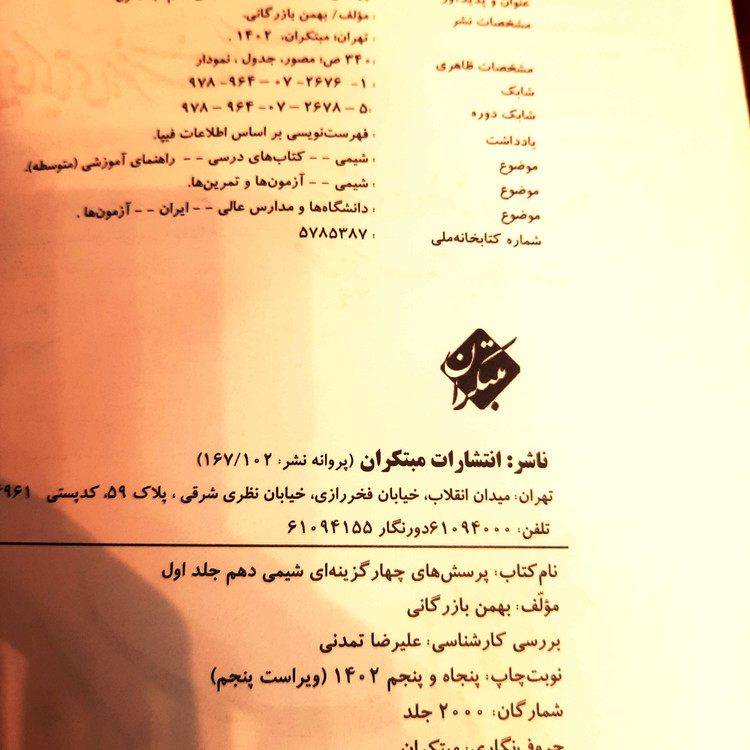 عنوان و پدیدآور
مشخصات نشر
مؤلف/ بهمن بازرگانی.
: تهران: مبتکران، ۱۴۰۲ .
مشخصات ظاهری : ۳۴۰ ص؛ مصور، جدول ، نمودار
شابک : ۱- ۲۶۷۶ -۰۷ – ۹۶۴ -۹۷۸
شابک دوره : ۵ – ۲۶۷۸ –۰۷ – ۹۶۴ – ۹۷۸
یادداشت : فهرست‌نویسی بر اساس اطلاعات فیپا.
موضوع : شیمی –– کتاب‌های درسی –– راهنمای آموزشی (متوسطه).
موضوع : شیمی –– آزمون‌ها و تمرین‌ها.
موضوع : دانشگاه‌ها و مدارس عالی –– ایران –– آزمون‌ها .
شماره کتابخانه‌ملی : ۵۷۸۵۳۸۷
مبتکران
ناشر: انتشارات مبتکران (پروانه نشر: ۱۶۷/۱۰۲)
تهران: میدان انقلاب، خیابان فخررازی، خیابان نظری شرقی ، پلاک ۵۹، کدپستی
تلفن: ۶۱۰۹۴۰۰۰دورنگار ۶۱۰۹۴۱۵۵
نام‌کتاب: پرسش‌های چهارگزینه‌ای شیمی دهم جلد اول
مؤلّف: بهمن بازرگانی
بررسی کارشناسی: علیرضا تمدنی
نوبت‌چاپ: پنجاه و پنجم ۱۴۰۲ (ویراست پنجم)
شمارگان: ۲۰۰۰ جلد
حروف‌نگاری: مبتکران